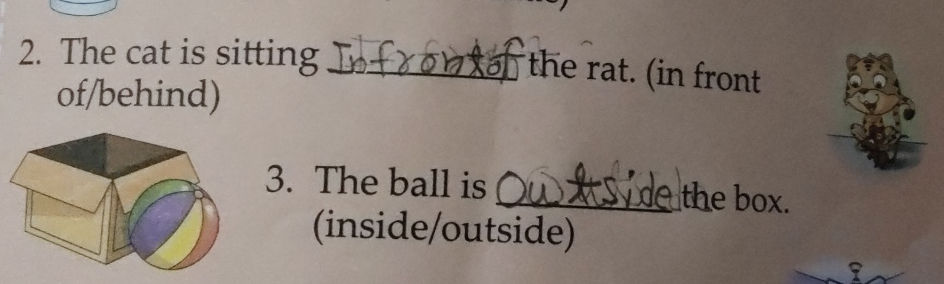 2. The cat is sitting Infrontof the rat. (in front
of/behind)
3. The ball is Outside the box.
(inside/outside)